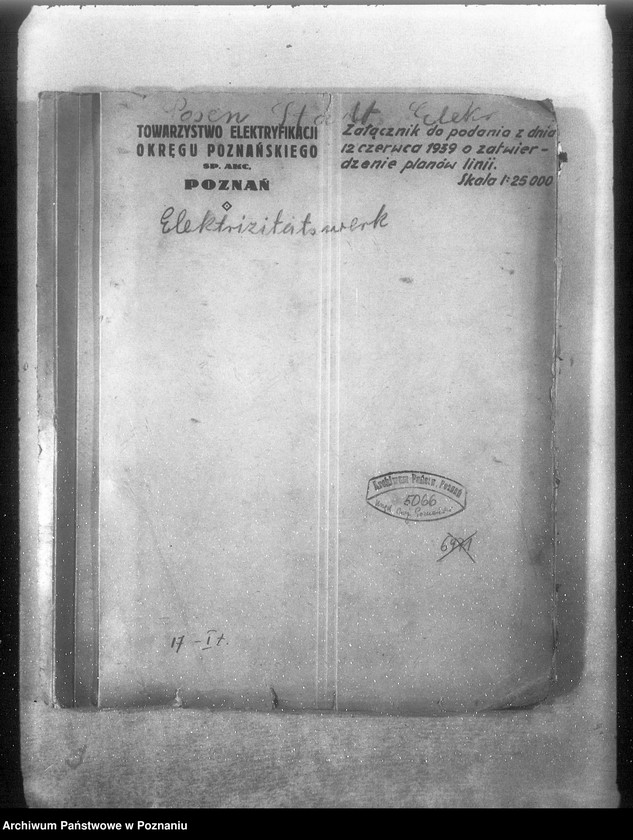 Posen Stadt Elektr
TOWARZYSTWO ELEKTRYFIKACJI
OKRĘGU POZNAŃSKIEGO
SP. AKC.
POZNAŃ
Załącznik do podania z dnia
12 czerwca 1939 o zatwier-
dzenie planów linii.
Skala 1:25 000
Elektrizitätswerk
Archiwum Państw. Poznań
5066
6971
17 - I
Archiwum Państwowe w Poznaniu